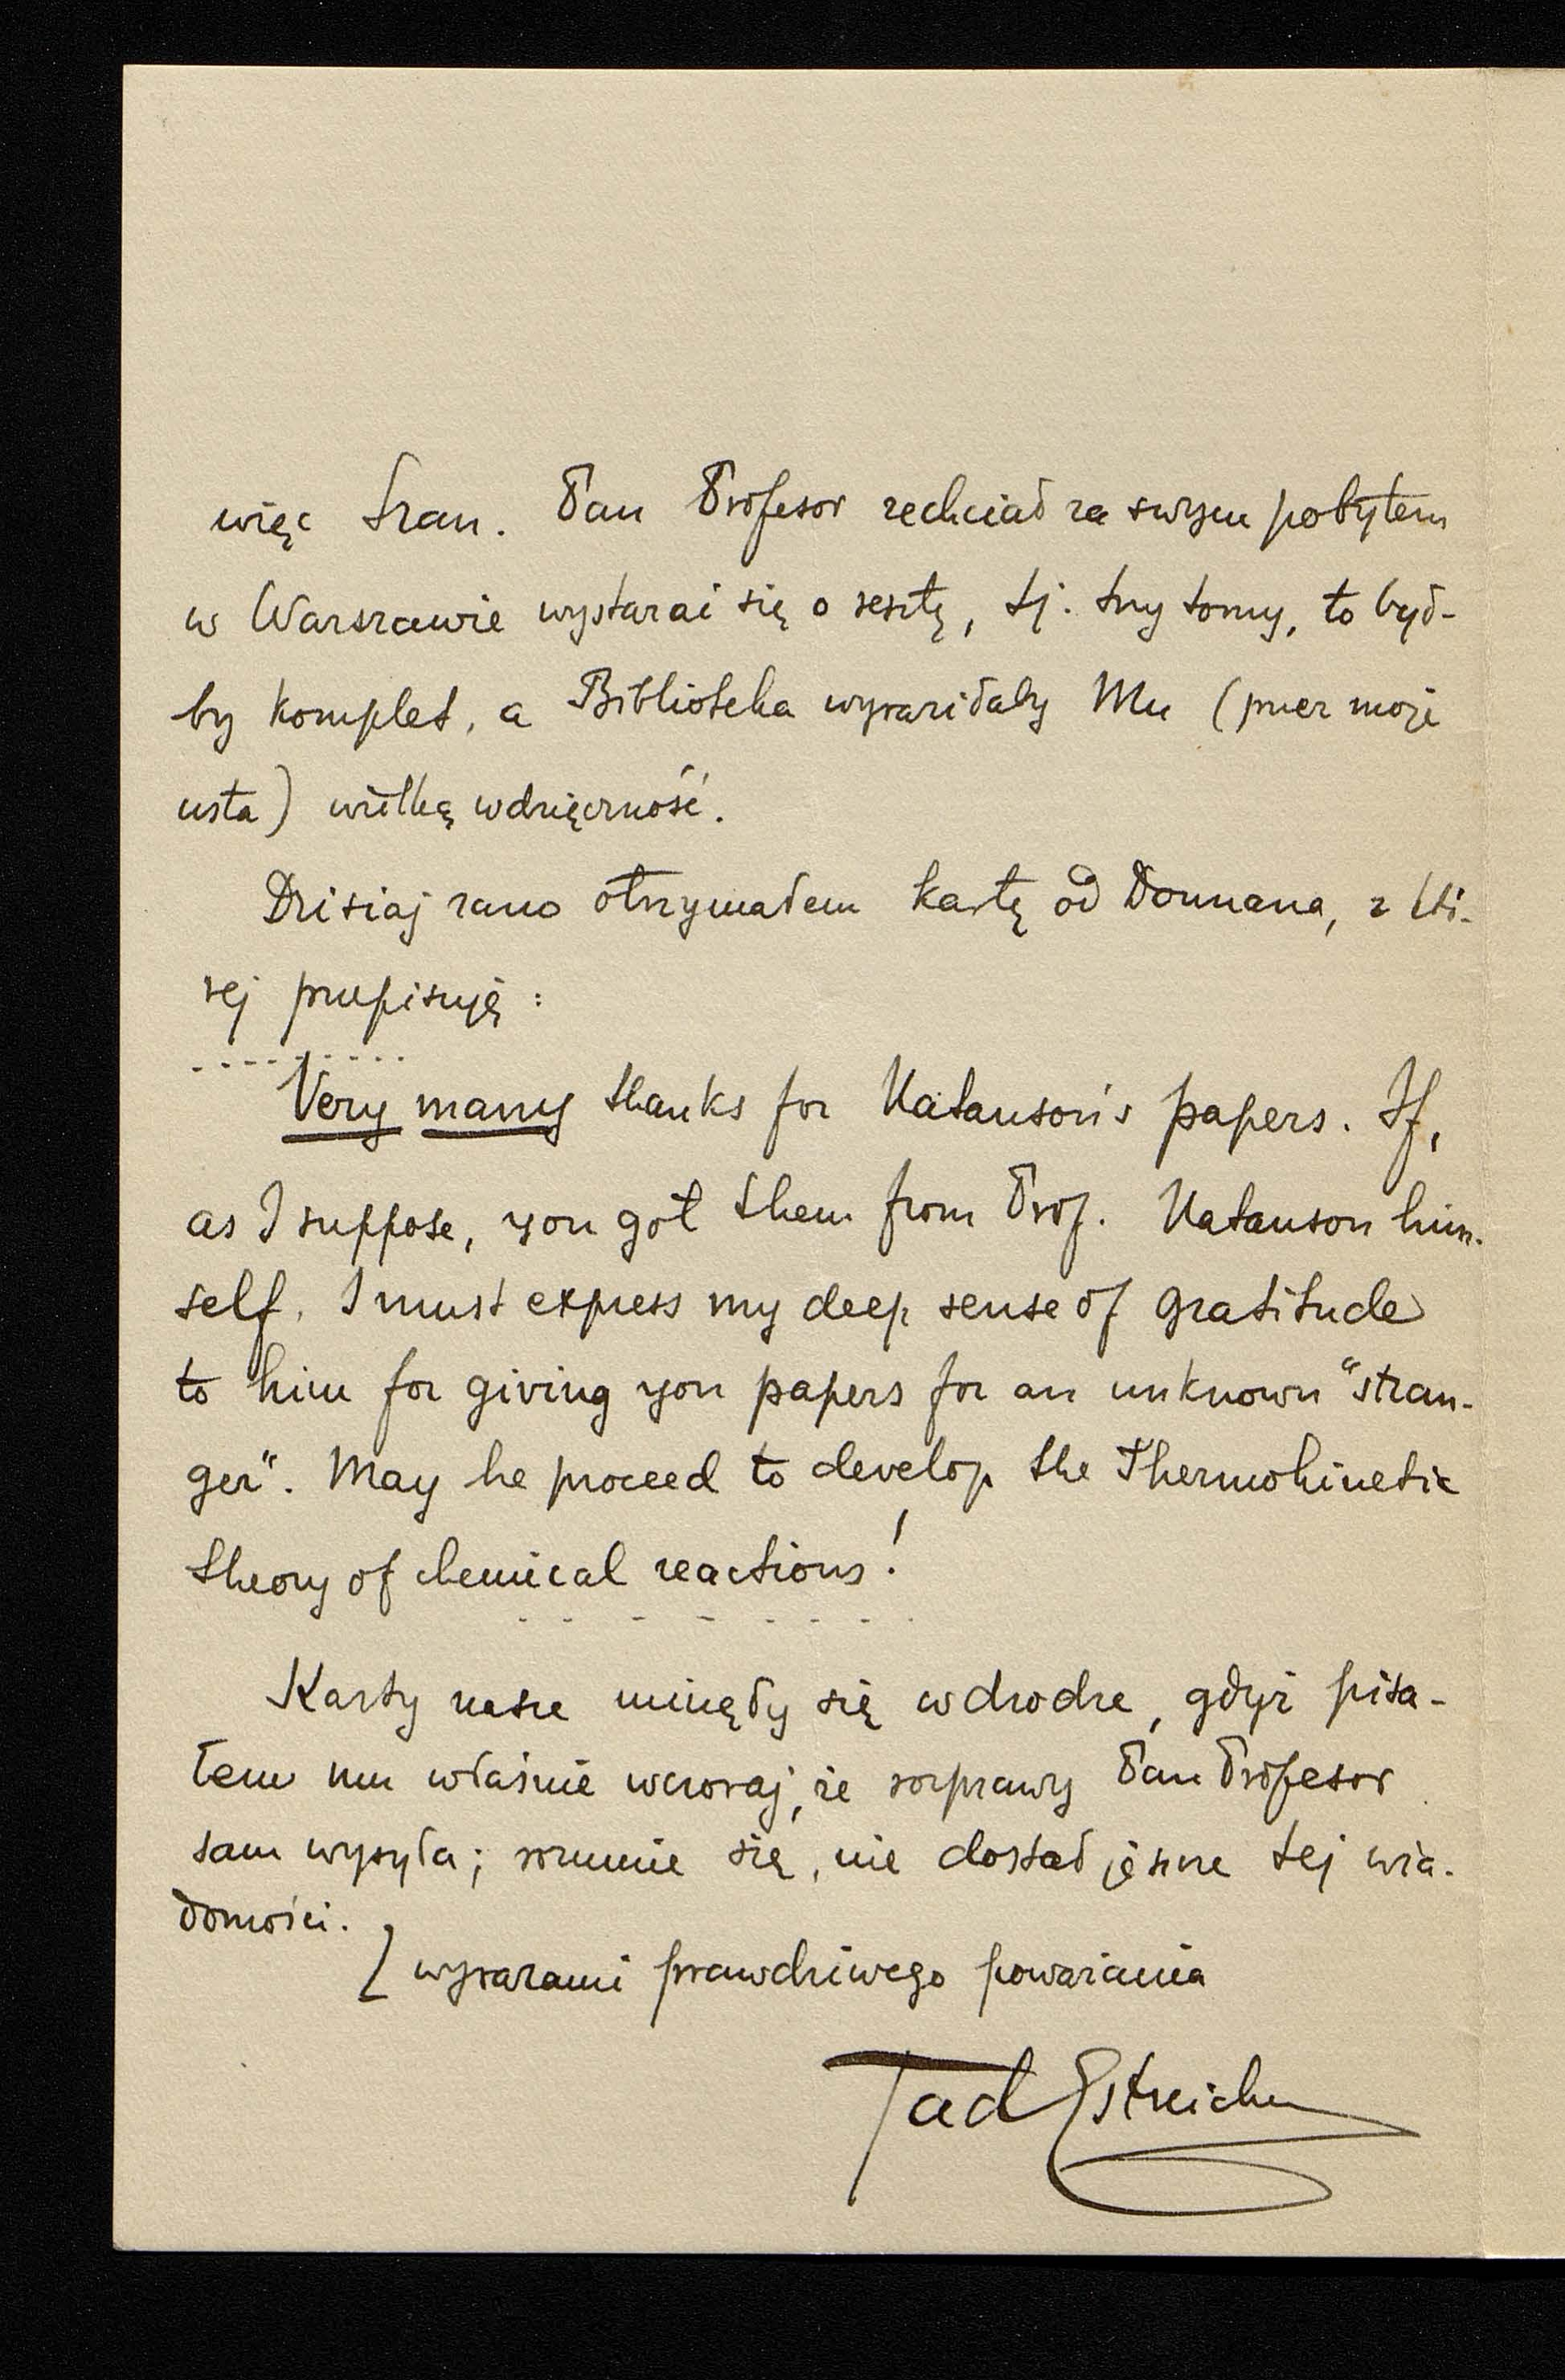 więc Szan. Pan Profesor zechciał za swym pobytem
w Warszawie wystarać się o resztę, tj. trzy tomy, to był-
by komplet, a Biblioteka wyraziłaby Mu (przez moje
usta) wielką wdzięczność.
Dzisiaj rano otrzymałem kartę od Donnana, z któ-
rej przepisuję:
. . . . . . . . . .
Very many thanks for Natanson's papers. If,
as I suppose, you got them from Prof. Natanson him-
self, I must express my deep sense of gratitude
to him for giving you papers for an unknown “stran-
ger”. May he proceed to develop the Thermokinetic
theory of chemical reactions!
. . . . . . . .
Karty nasze minęły się w drodze, gdyż pisa-
łem mu właśnie wczoraj, że rozprawy Pan Profesor
sam wysyła; rozumie się, nie dostał jeszcze tej wia-
domości.
Z wyrazami prawdziwego poważania
Tad Estreicher